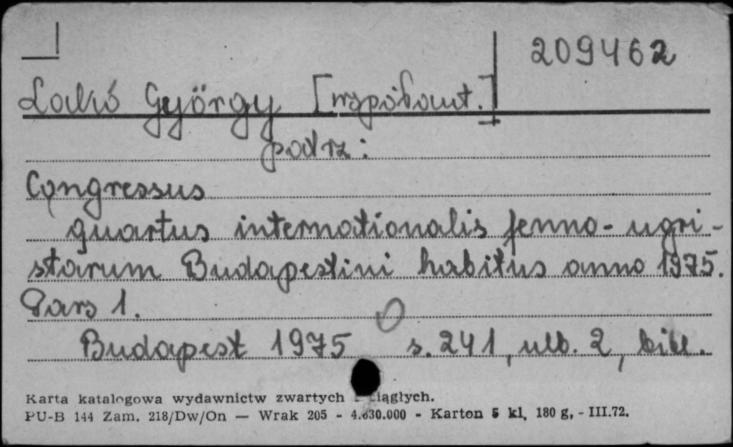 209462
Lakó György [współaut.]
podrz:
Congressus
quartus internationalis fenno-ugri-
starum Budapestini habitus anno 1975.
Pars 1.
Budapest 1975 s. 241, ulb. 2, bibl.
Karta katalogowa wydawnictw zwartych i ciągłych.
PU-B 144 Zam. 218/Dw/On — Wrak 205 - 4.830.000 - Karton 5 kl, 180 g, - III.72.